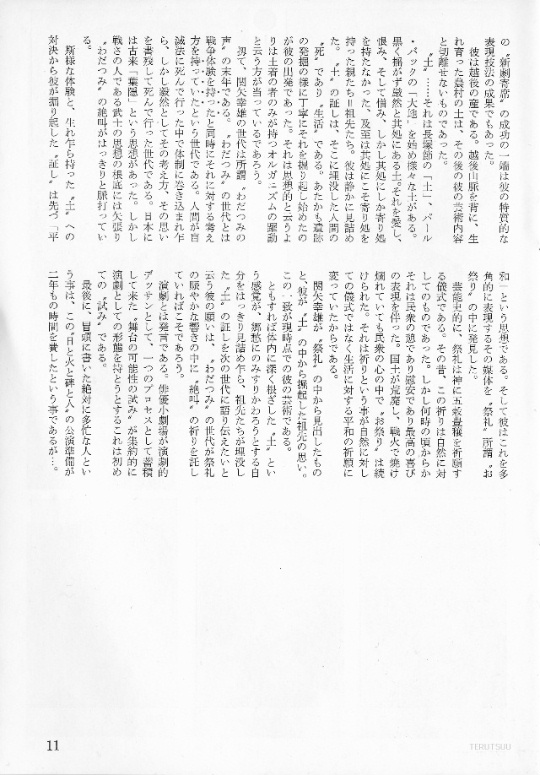 の〝新劇寄席〟の成功の一端は彼の特質的な
表現技法の成果でもあった。
彼は越後の産である。越後山脈を背に、生
れ育った農村の土は、その後の彼の芸術内容
と切離せないものであった。
〝土〟……それは長塚節の「土」、パール
・バックの「大地」を始め様々な土がある。
黒く掘が、厳然と其処にある土。それを愛し、
恨み、そして憎み、しかし其処にしか寄り処
を持たなかった、乃至は其処にこそ寄り処を
持った親たち＝祖先たち。彼は静かに見詰め
た。〝土〟の証しは、そこに埋没した人間の
〝死〟であり〝生活〟である。あたかも遺跡
の発掘の様に丁寧にそれを掘り起し始めたの
が彼の出発であった。それは思想的と云うよ
りは土着の者のみが持つオルガニズムの躍動
と云う方が当っているであろう。
男て、関矢幸雄の世代は所謂〝わだつみの
声〟の末年である。〝わだつみ〟の世代とは
戦争体験を持ったと同時にそれに対する考え
方を持っていたという世代である。人間が盲
滅法に死んで行った中で体制に巻き込まれ乍
ら、しかし毅然としてその考え方、その思い
を書残して死んで行った世代である。日本に
は古来「葉隠」という思想があった。しかし
戦さの人である武士の思想の根底には矢張り
〝わだつみ〟の絶叫がはっきりと脈打ってい
る。
斯様な体験と、生れ乍ら持った〝土〟への
対決から彼が掘り起した〝証し〟は先づ「平
和」という思想である。そして彼はこれを多
角的に表現するその媒体を〝祭礼〟所謂〝お
祭り〟の中に発見した。
芸能史的に、祭礼は神に五穀豊穣を祈願す
る儀式である。その昔、この祈りは自然に対
してのものであった。しかし何時の頃からか
それは民衆の憩であり慰安であり最高の喜び
の表現を伴った。国土が荒廃し、戦火で焼け
爛れていても民衆の心の中で〝お祭り〟は続
けられた。それは祈りという事が自然に対し
ての儀式ではなく生活に対する平和の祈願に
変っていたからである。
関矢幸雄が〝祭礼〟の中から見出したもの
と、彼が〝土〟の中から掘起した祖先の思い。
この一致が現時点での彼の芸術である。
ともすれば体内に深く根ざした〝土〟とい
う感覚が、郷愁にのみすりかわろうとする自
分をはっきり見詰め乍ら、祖先たちが埋没し
た〝土〟の証しを次の世代に語り伝えたいと
云う彼の願いは、〝わだつみ〟の世代が祭礼
の賑やかな響きの中に〝絶叫〟の祈りを託し
ていればこそであろう。
演劇とは発言である。俳優小劇場が演劇的
デッサンとして、一つのプロセスとして蓄積
して来た〝舞台の可能性の試み〟が集約的に
演劇としての形態を持とうとするこれは初め
ての〝試み〟である。
最後に、冒頭に書いた絶対に多忙な人とい
う事は、この〝日と火と碑と人〟の公演準備が
二年もの時間を費したという事であるが…。
11
TERUTSUU